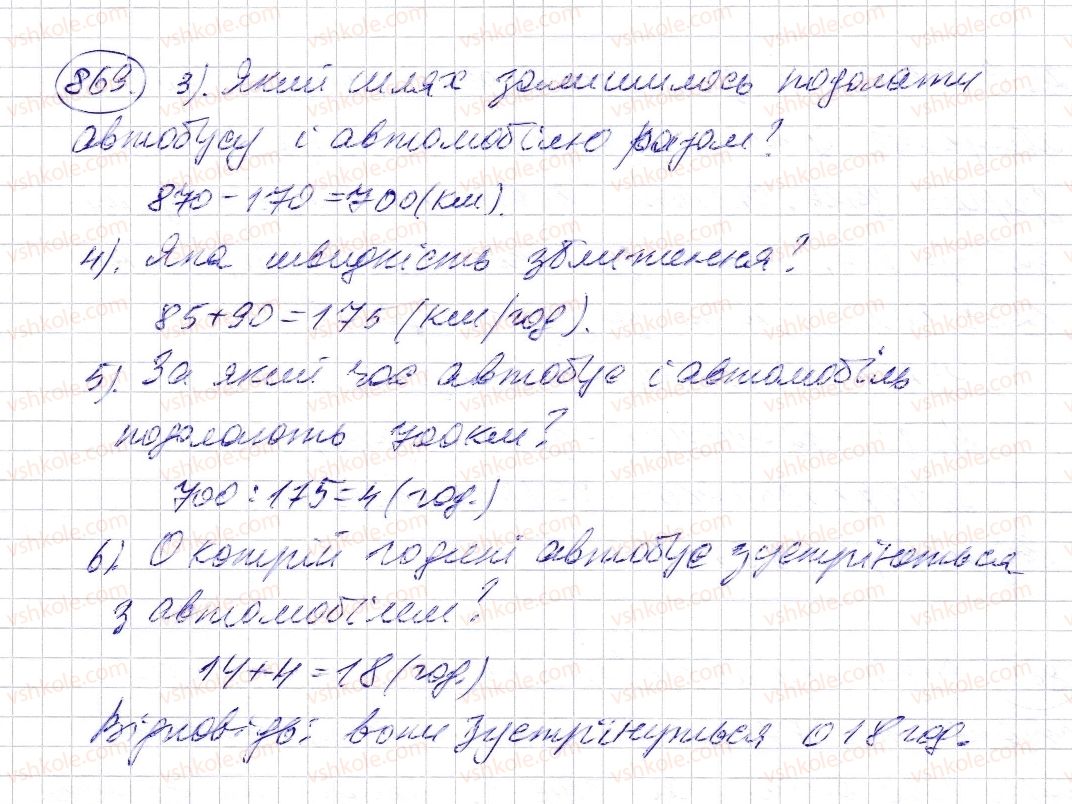 869. 3). Який шлях залишилось подолати
автобусу і автомобілю разом?
870-170=700(км).
4). Яка швидкість зближення?
85+90=175 (км/год).
5). За який час автобус і автомобіль
подолають 700км?
700:175=4(год.)
6). О котрій годині автобус зустрінеться
з автомобілем?
14+4=18(год.)
Відповідь: вони зустрінуться о 18 год.